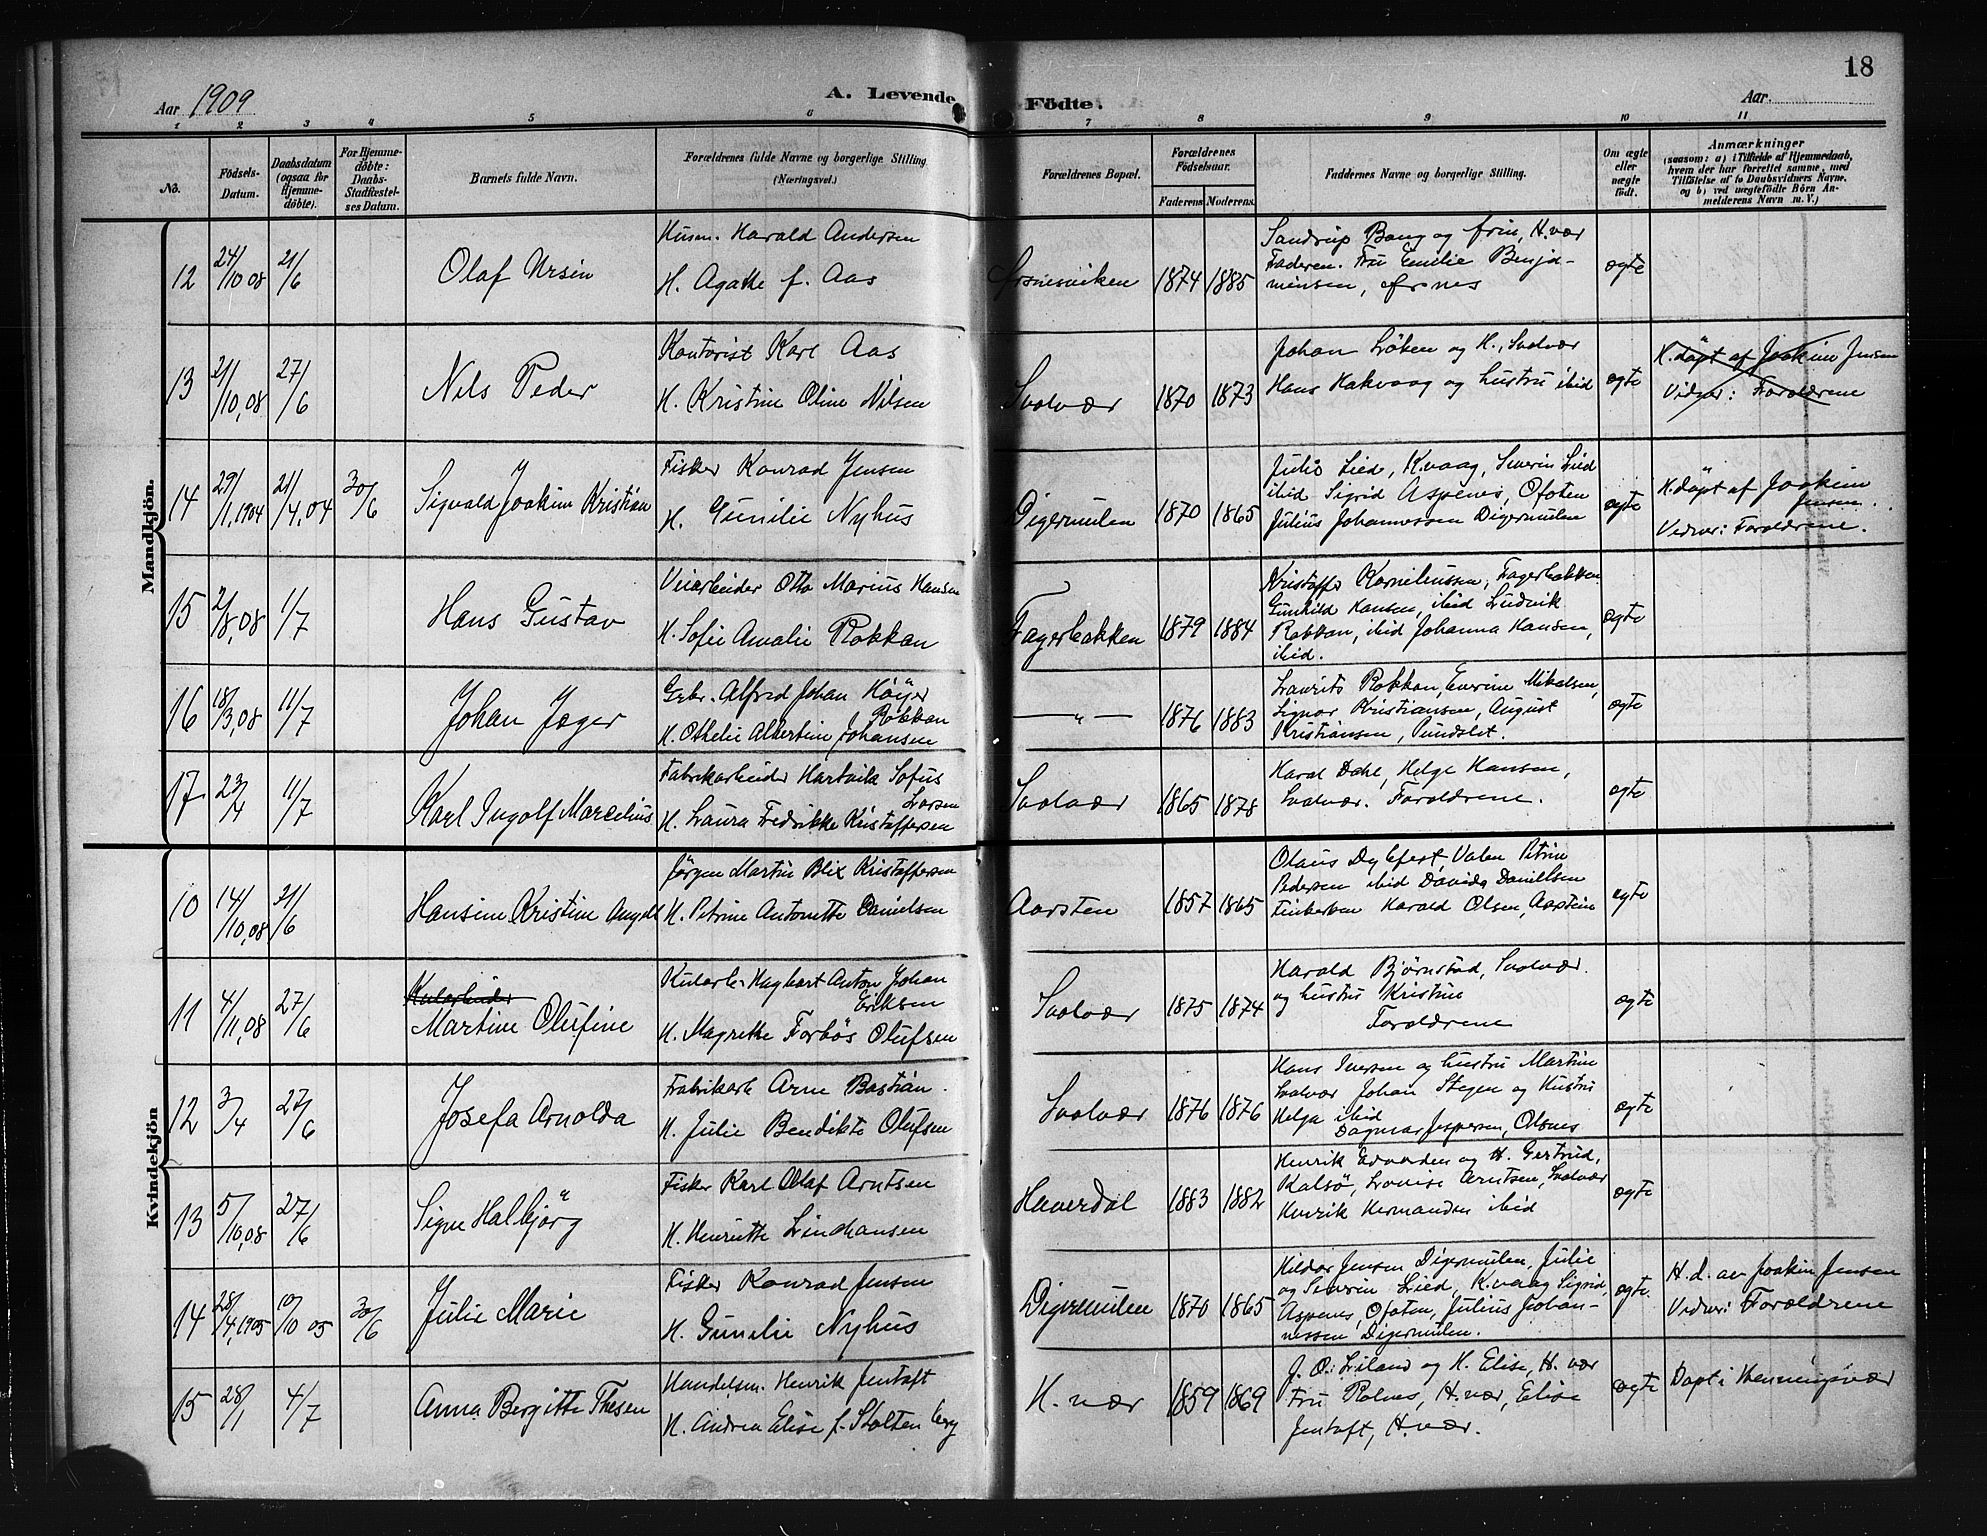 18
Aar 1909
A. Levende Födte.
Aar.
1 2 3 4 5 6 7 8 9 10 11
No.
Födsels-
Datum.
Daabsdatum
(ogsaa for
Hjemme-
döbte).
For Hjemme-
döbte:
Daabs-
Stadfæstel-
ses Datum.
Barnets fulde Navn.
Forældrenes fulde Navne og borgerlige Stilling.
(Næringsvei.)
Forældrenes Bopæl.
Forældrenes
Födselsaar.
Faderens Moderens
Faddernes Navne og borgerlige Stilling.
Om ægte
eller
uægte
födt.
Anmærkninger
(saasom: a) i Tilfælde af Hjemmedaab,
hvem der har forrettet samme, med
Tilföielse af to Daabsvidners Navne,
og b) ved uægtefödte Börn An-
melderens Navn m. V.)
Mandkjön.
12
24/10 08
21/6
Olaf Ursin
Husm. Harald Andersen
H. Agathe f. Aas
1874 1885
Sandrup Bang og frue, H.vær
Faderen. Fru Emilie Benja-
minsen,
ægte
13
21/10,08
27/6
Nils Peder
Kontorist Karl Aas
H. Kristine Oline Nilsen
Svolvær
1870 1873
Johan Løken og H., Svolvær
Hans Hakvaag og hustru ibid
ægte
H.døpt af Joakim Jensen
Vidner: Forældrene
14
29/1,1904
21/4,04
30/6
Sigvald Joakim Kristian
Fisker Konrad Jensen
H. Gunilie Nyhus
Digermulen
1870 1865
Julie Lied, Kvaag, Severin Lied
ibid Sigrid Aspenes, Ofoten
Julius Johannessen Digermulen
ægte
H.døpt af Joakim
Jensen.
Vidner: Forældrene.
15
2/8,08
1/7
Hans Gustav
Veiarbeider Otto Marius Hansen
H. Sofie Amalie Rokkan
Fagerbakken
1879 1884
Kristoffer Korneliussen, Fagerbakken
Gunhild Hansen, ibid Ludvik
Rokkan, ibid Johanna Hansen,
ibid.
ægte
16
18/3,08
11/7
Johan Jæger
Gbr. Alfred Johan Höyer
Rokkan
H. Othelie Albertine Johansen
— " —
1876 1883
Laurits Rokkan, Everine Mikalsen,
Signor Kristiansen, August
Kristiansen, Pundslet.
ægte
17
23/4
11/7
Karl Ingolf Marcelius
Fabrikarbeider Hartvik Sofus
Larsen
H. Laura Fredrikke Kristoffersen
Svolvær
1865 1878
Haral Dahl, Helge Hansen,
Svolvær. Forældrene.
ægte
Kvindekjön
10
14/10,08
21/6
Hansine Kristine Angell
Jörgen Martin Blix Kristoffersen
H. Petrine Antonette Danielsen
Aarsten
1857 1865
Olaus Dybfest, Valen Petrine
Pedersen ibid Davida Daniellsen
Finkerven Harald Olsen,
ægte
11
4/11,08
27/6
Kularbeider
Martine Olufine
Kularb. Hagbart Anton Johan
Eriksen
H. Magrethe Forbös Olufsen
Svolvær
1875 1874
Harald Bjørnstad, Svolvær.
og hustru Kristine
Forældrene
ægte
12
3/4
27/6
Josefa Arnolda
Fabrikarb Arne Bastian.
H. Julie Bendikte Olufsen
Svolvær
1876 1876
Hans Iversen og hustru Martine
Svolvær Johan Stegen og Hustru
Helga ibid
Dagmar Jespersen, Olsnes
ægte
13
5/10,08
27/6
Signe Halbjörg
Fisker Karl Olaf Arntsen
H. Henriette Lindhansen
Haverdal
1883 1882
Henrik Edvardsen og H. Gertrud,
Kalsö, Lovise Arntsen, Svolvær
Henrik Hermandsen ibid
ægte
14
28/4,1905
10/10 05
30/6
Julie Marie
Fisker Konrad Jensen
H. Gunelie Nyhus
Digermulen
1870 1865
Hildor Jensen Digermulen, Julie
og Severin Lied, Kvaag Sigrid,
Aspenes, Ofoten, Julius Johan-
nessen Digermulen.
ægte.
H.d. av Joakim Jensen
Vidner: Forældrene
15
28/1
4/7
Anna Bergitte Thesen
Handelsm. Henrik Jentoft
H. Andrea Elise f. Stoltenberg
H. vær
1859 1869
J. O. Liland og H. Elise, H.vær
Fru Rolnes, H.vær, Elise
Jentoft, H.vær.
ægte
Døpt i Henningsvær